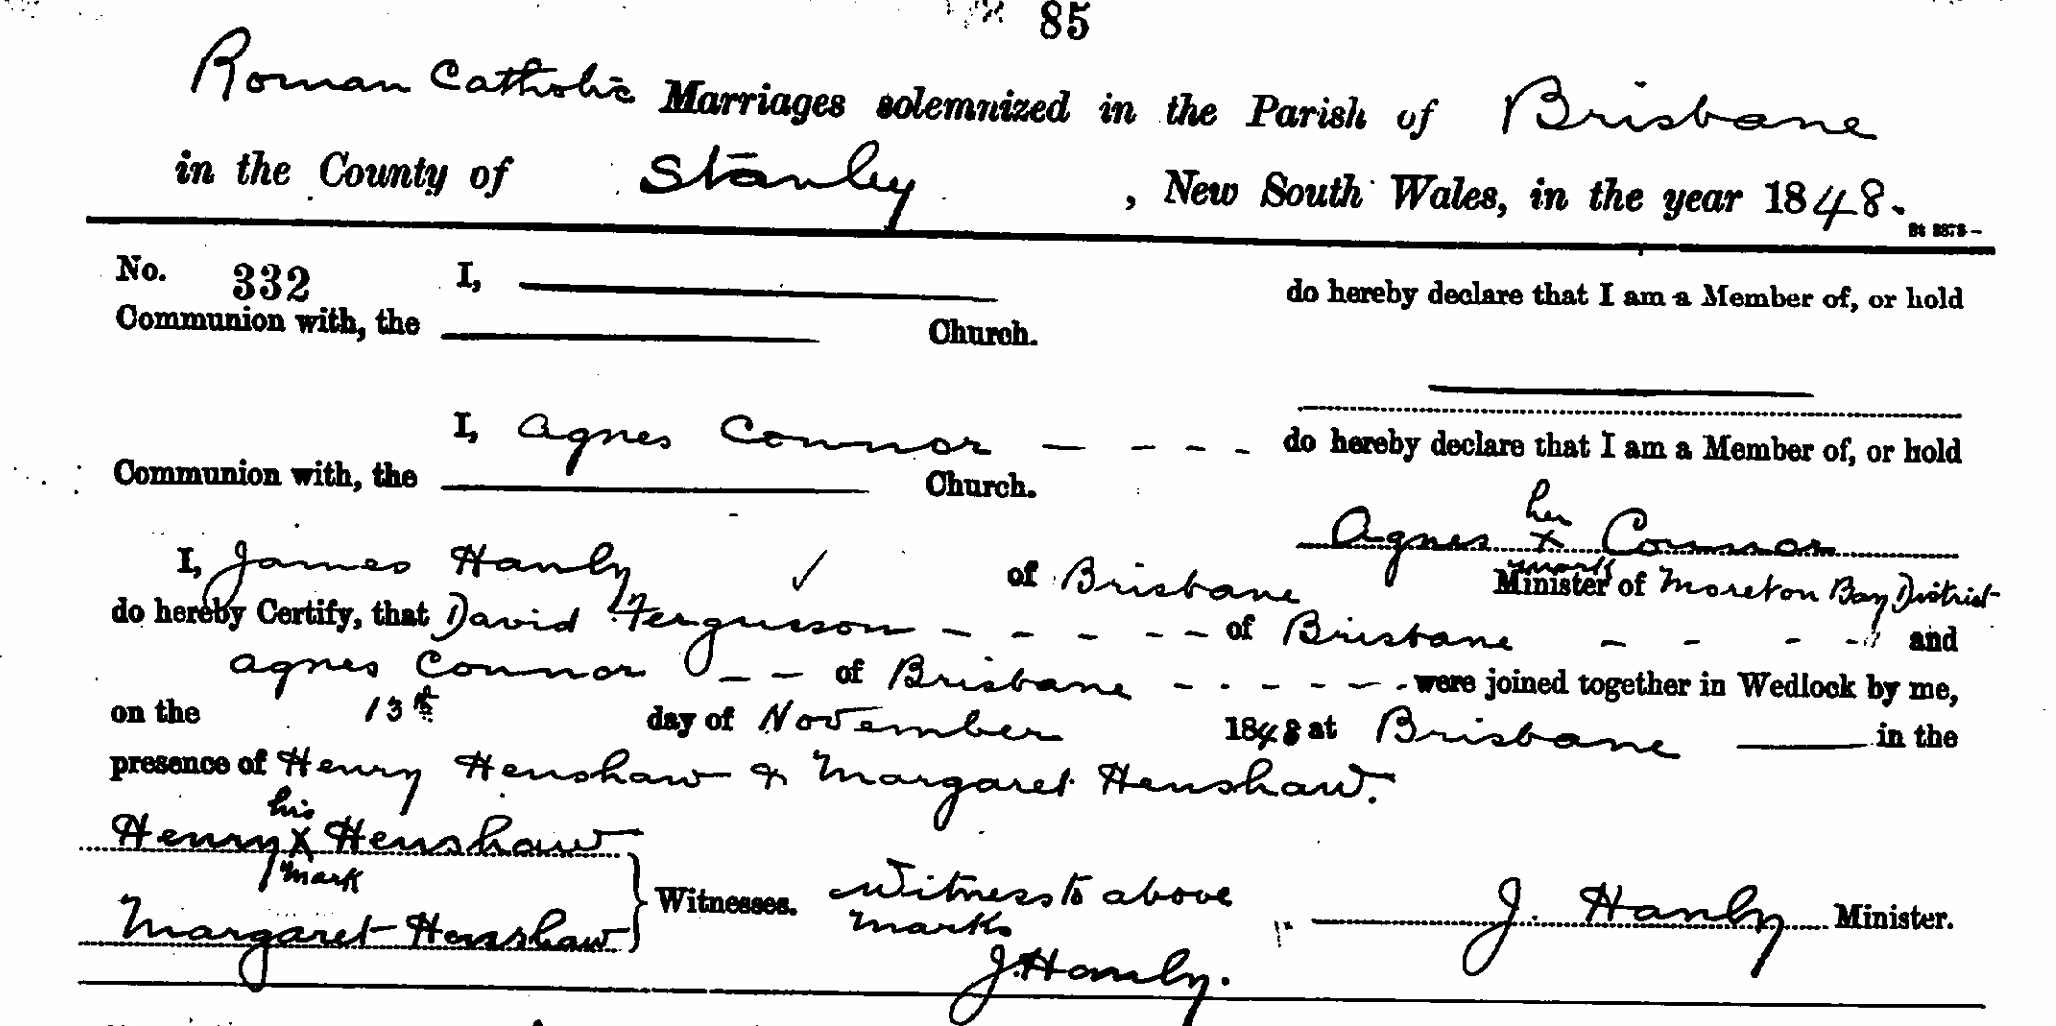 85
Roman Catholic Marriages solemnized in the Parish of Brisbane
in the County of Stanley, New South Wales, in the year 1848.
No. 332 I, do hereby declare that I am a Member of, or hold
Communion with, the Church.
I, Agnes Connor - - - - do hereby declare that I am a Member of, or hold
Communion with, the Church.
her
Agnes X Connor
mark
I, James Hanly ✓ of Brisbane Minister of Moreton Bay District
do hereby Certify, that David Fergusson - - - - - of Brisbane - - - - and
Agnes Connor - - of Brisbane - - - - - - were joined together in Wedlock by me,
on the 13th day of November 1848 at Brisbane in the
presence of Henry Henshaw & Margaret Henshaw.
his
Henry X Henshaw
mark
Witnesses. Witness to above
Margaret Henshaw marks J. Hanly Minister.
J. Hanly.